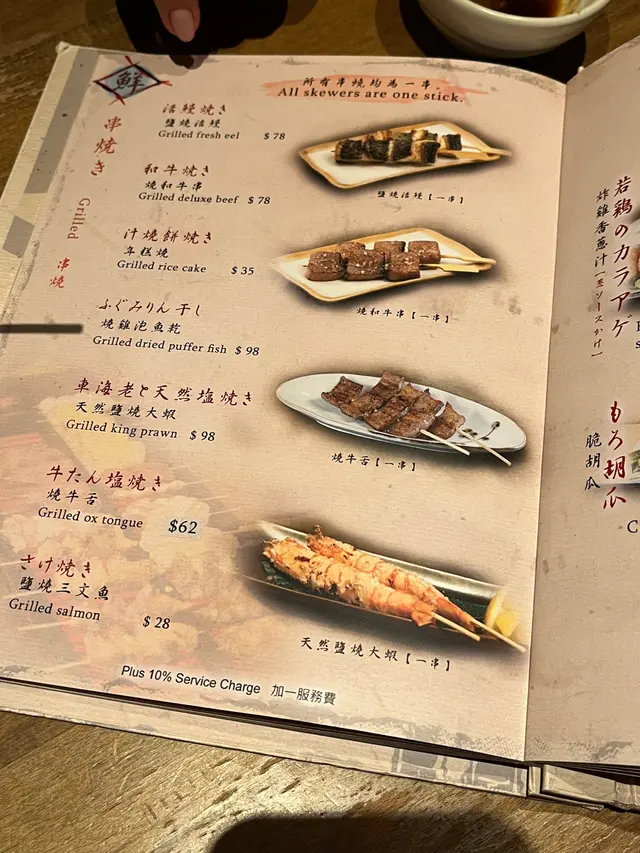 鮮
串燒き
Grilled
串燒
所有串燒均為一串。
All skewers are one stick.
活鰻焼き
鹽燒活鰻
Grilled fresh eel $ 78
和牛焼き
燒和牛串
Grilled deluxe beef $ 78
汁焼餅焼き
年糕燒
Grilled rice cake $ 35
ふぐみりん干し
燒雞泡魚乾
Grilled dried puffer fish $ 98
車海老と天然塩焼き
天然鹽燒大蝦
Grilled king prawn $ 98
牛たん塩焼き
燒牛舌
Grilled ox tongue $62
さけ焼き
鹽燒三文魚
Grilled salmon $ 28
鹽燒活鰻【一串】
燒和牛串【一串】
燒牛舌【一串】
天然鹽燒大蝦【一串】
Plus 10% Service Charge 加一服務費
若鶏のカラアゲ
炸雞香蔥汁
もろ胡瓜
脆胡瓜